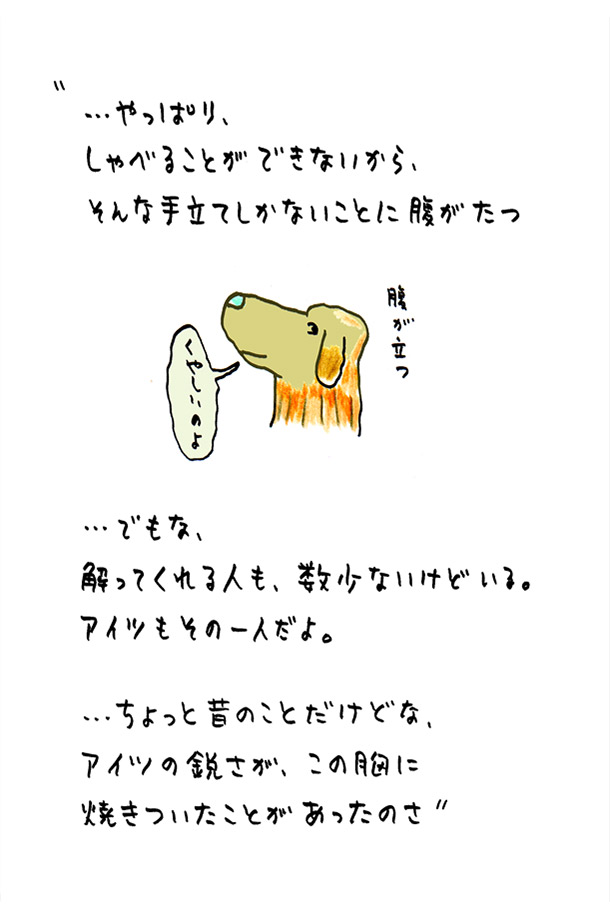 〃
…やっぱり、
しゃべることができないから、
そんな手立てしかないことに腹がたつ
腹が立つ
くやしいのよ
…でもな、
解ってくれる人も、数少ないけどいる。
アイツもその一人だよ。
…ちょっと昔のことだけどな、
アイツの鋭さが、この胸に
焼きついたことがあったのさ〃